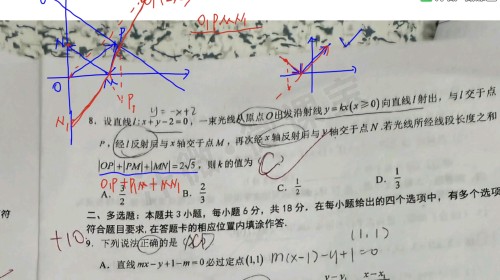 O₁PMN₁
P
O
M
P₁
N₁
y=-x+2
8. 设直线l: x+y-2=0, 一束光线从原点O出发沿射线y=kx(x≥0)向直线l射出, 与l交于点
P, 经l反射后与x轴交于点M, 再次经x轴反射后与y轴交于点N. 若光线所经线段长度之和
|OP|+|PM|+|MN|=2√5, 则k的值为
O₁P+PM+MN₁
A. 3/2 B. 2/3 C. 1/2 D. 1/3
二、多选题: 本题共3小题, 每小题6分, 共18分. 在每小题给出的四个选项中, 有多个选项
符合题目要求, 在答题卡的相应位置内填涂作答.
符
+10
9. 下列说法正确的是
(1,1)
A. 直线mx-y+1-m=0必过定点(1,1) m(x-1)-y+1=0
y-y₁ x-x₁